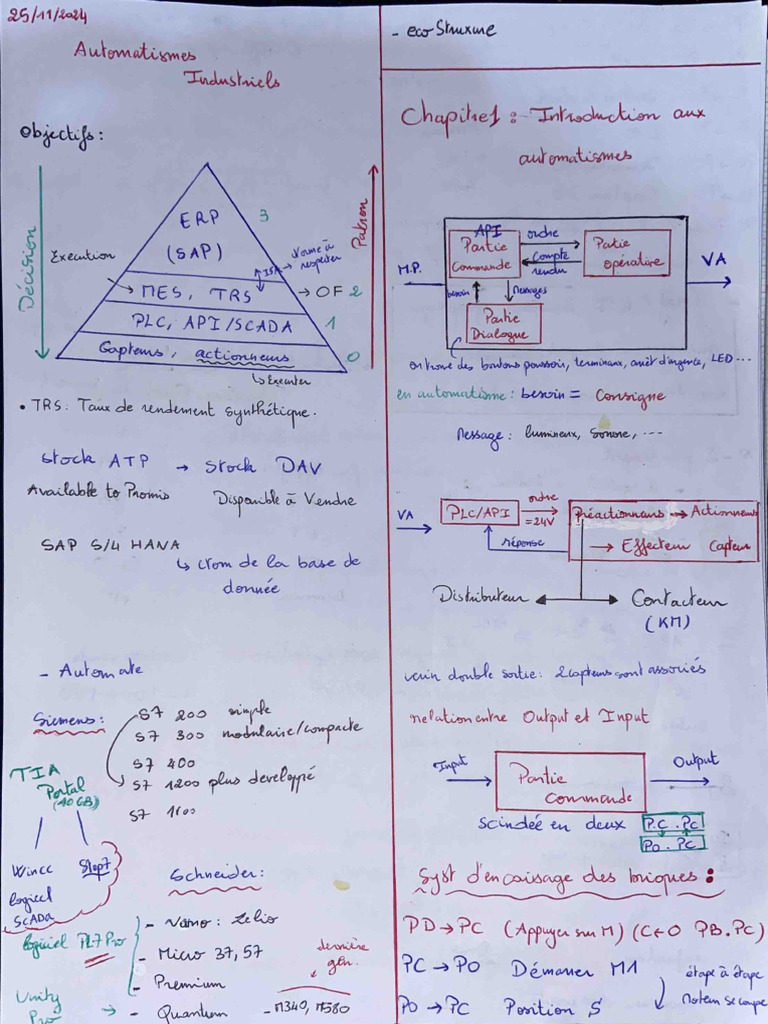 25/11/2024
Automatismes
Industriels
Objectifs:
Décision
Execution
ERP
(SAP)
3
ISA
Norme à
respecter
Patron
MES, TRS
→ OF 2
PLC, API/SCADA
1
Capteurs, actionneurs
0
↳ Executer
• TRS: Taux de rendement synthétique.
Stock ATP → Stock DAV
Available to Promis
Disponible à Vendre
SAP S/4 HANA
↳ de la base de
donnée
- Automate
Siemens:
S7 200 simple
S7 300 modulaire/compacte
S7 400
S7 1200 plus developpé
S7
TIA
Portal
(40GB)
Wincc
logicel
SCADA
Step7
Schneider:
logiciel PL7 Pro
- Nano: Zelio
- Micro 37, 57
- Premium
Unity
Pro
→ - Quantum
dernière
gén.
- M340, M580
- ecoStruxure
Chapitre1: Introduction aux
automatismes
M.P.
API
Partie
Commande
ordre
Compte
rendu
Partie
opérative
VA
besoin
Messages
Partie
Dialogue
on trouve des boutons poussoirs, terminaux, arrêt d'urgence, LED...
en automatisme: besoin = Consigne
Message: lumineux, sonore, ...
VA
PLC/API
ordre
=24V
réponse
Préactionneurs → Actionneurs
→ Effecteur Capteur
Distributeur
Contacteur
(KM)
verin double sortie: 2 capteurs sont associés
relation entre Output et Input
Input
Partie
Commande
Output
scindée en deux
P.C . PC
PO . PC
Syst d'encaisage des briques:
PD → PC (Appuyer sur M) (C←O PB.PC)
PC → PO Démarrer M1
étape à étape
PO → PC Position S
Moteur se coupe